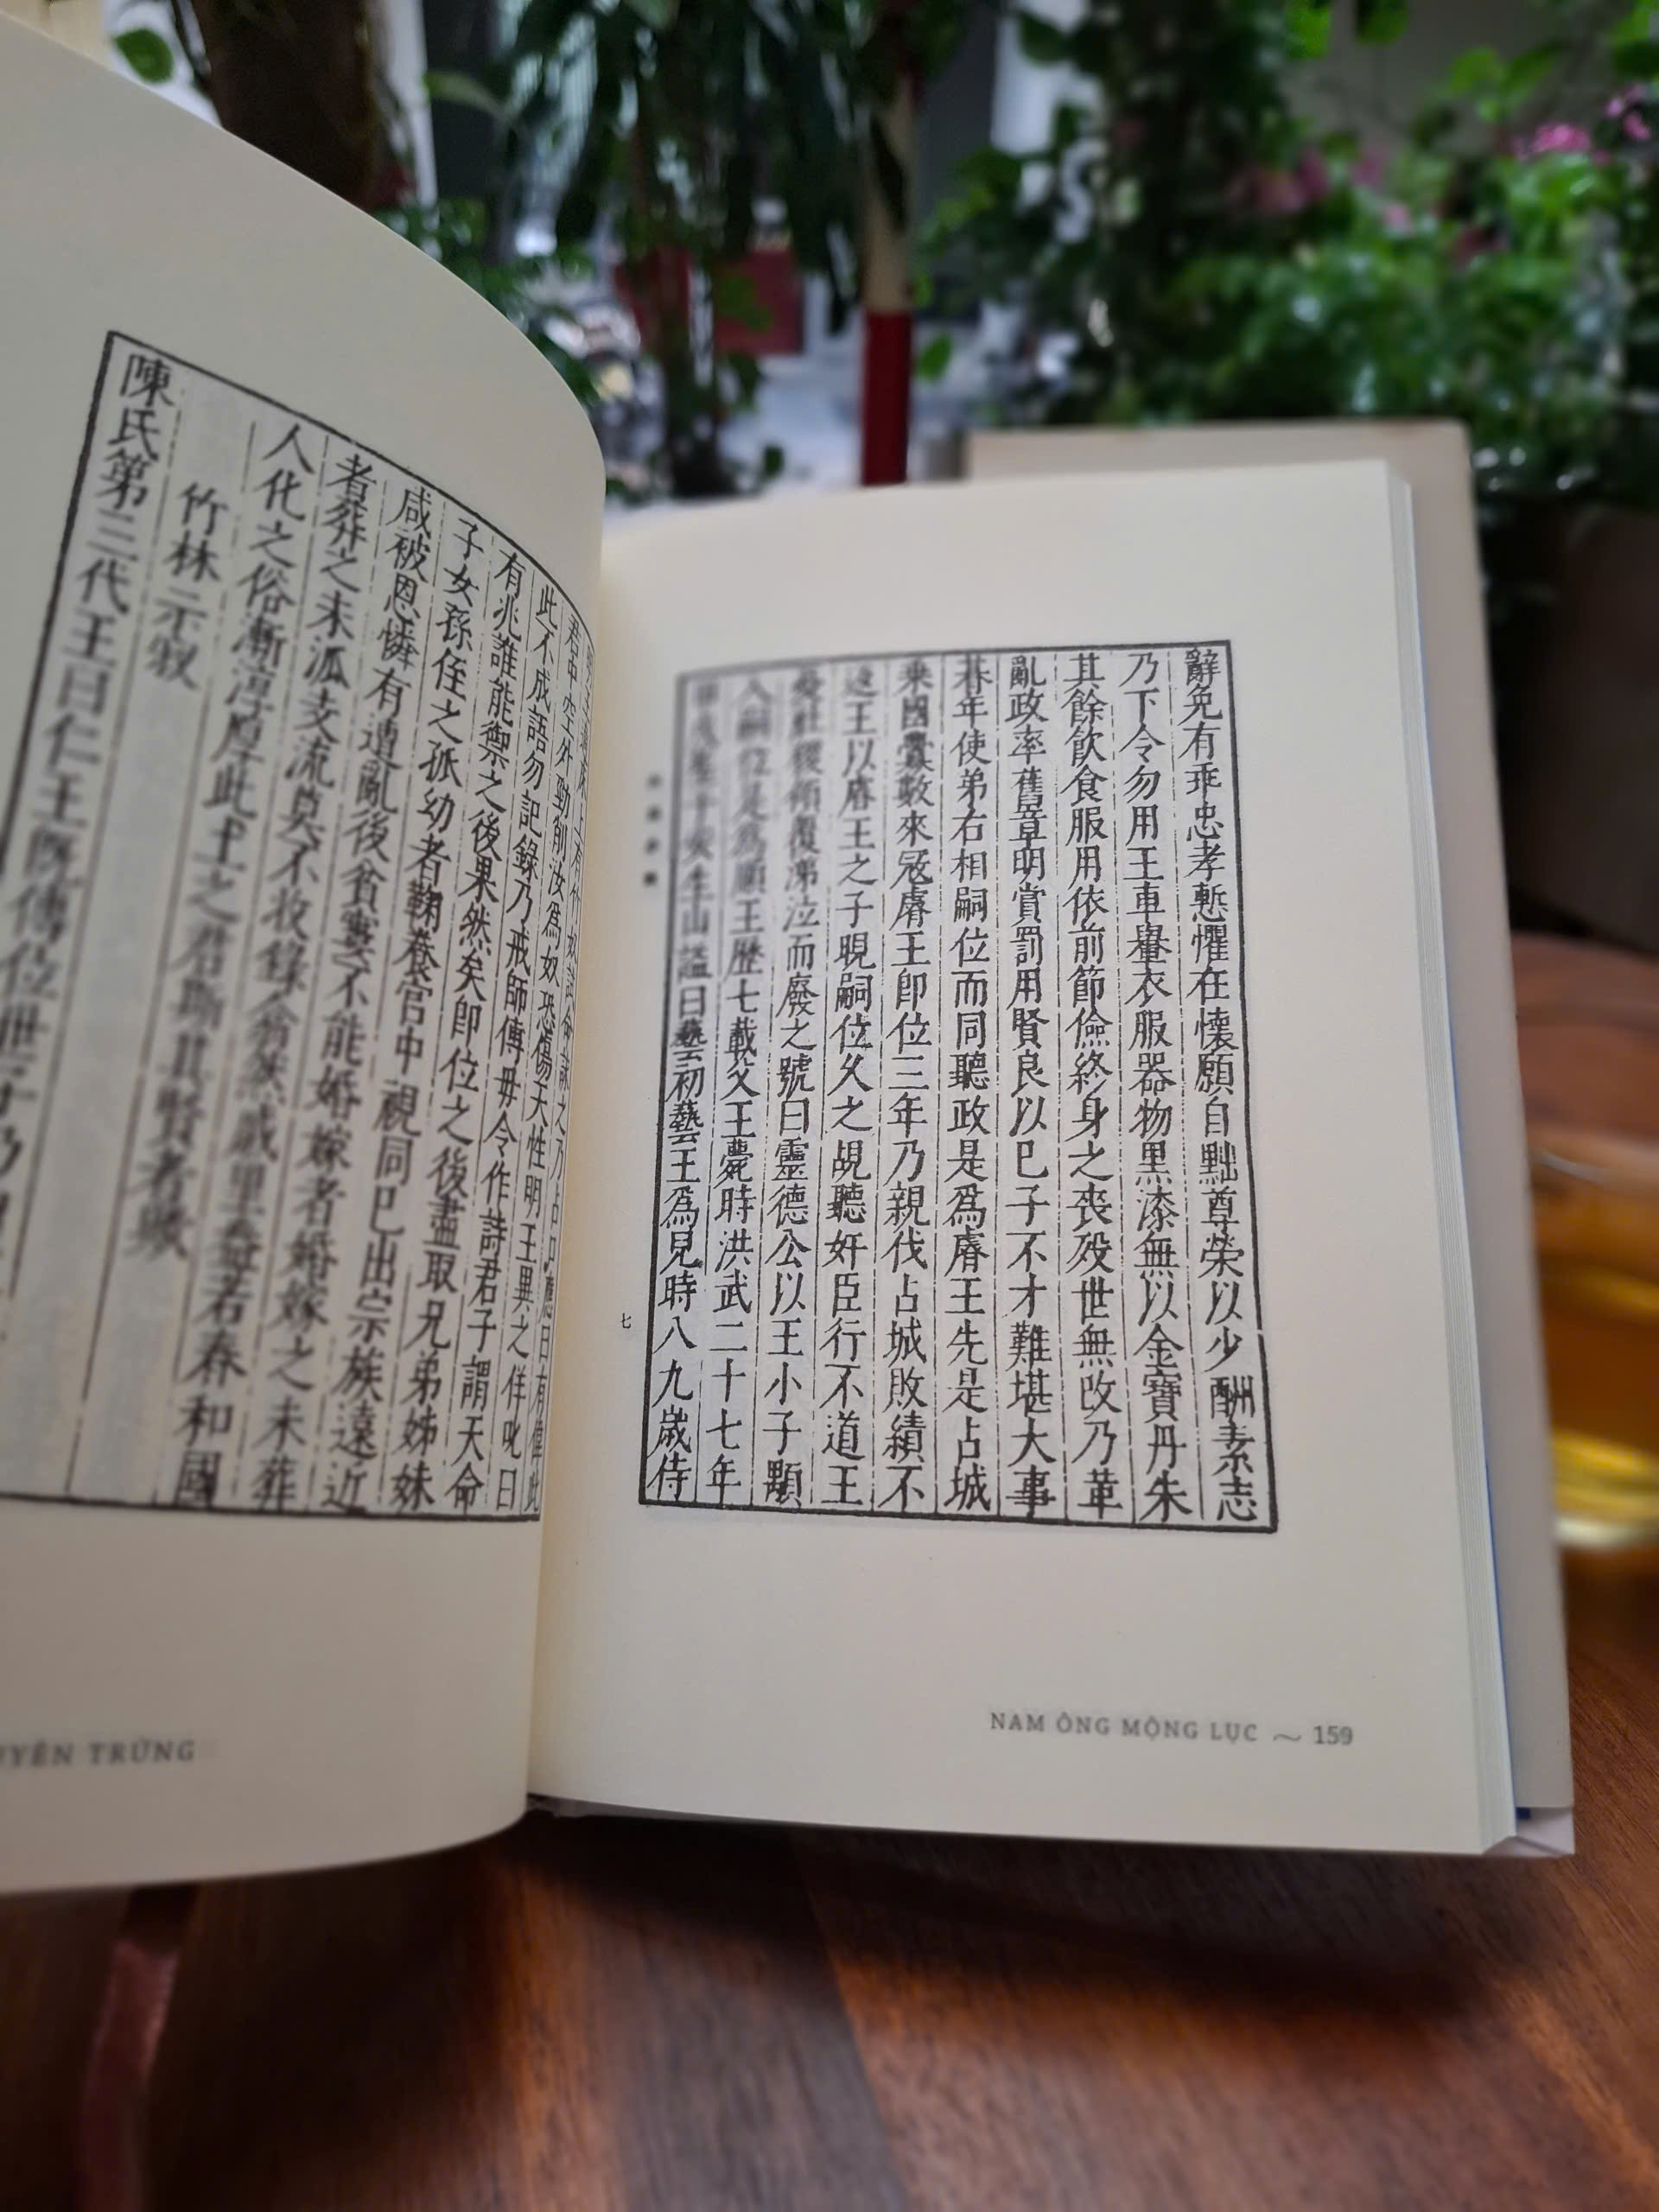 辭免有乖忠孝慙懼在懷願自黜尊榮以少酬素志
乃下令勿用王車轝衣服器物黑漆無以金寶丹朱
其餘飲食服用依前節儉終身之喪歿世無改乃革
亂政率舊章明賞罰用賢良以已子不才難堪大事
朞年使弟右相嗣位而同聽政是爲睿王先是占城
乗國釁數來冦睿王即位三年乃親伐占城敗績不
返王以睿王之子晛嗣位久之覘聽奸臣行不道王
憂社稷傾覆涕泣而廢之號曰靈德公以王小子顒
入嗣位是爲順王歷七載父王薨時洪武二十七年
生山謚曰藝初藝王爲兒時八九歲侍
七
NAM ÔNG MỘNG LỤC ~ 159
有竹奴請命詠之乃占口應曰有偉此
君中空外勁削汝爲奴恐傷天性明王異之佯叱曰
此不成語勿記錄乃戒師傅毋令作詩君子謂天命
有兆誰能禦之後果然矣即位之後盡取兄弟姊妹
子女孫侄之孤幼者鞠養宮中視同已出宗族遠近
咸被恩憐有遭亂後貧寠不能婚嫁者婚嫁之未葬
者葬之末派支流莫不收錄翕然戚里藹若春和國
人化之俗漸淳厚此王之君斯其賢者歟
竹林示寂
陳氏第三代王曰仁王既傳位世子乃
YÊN TRỪNG